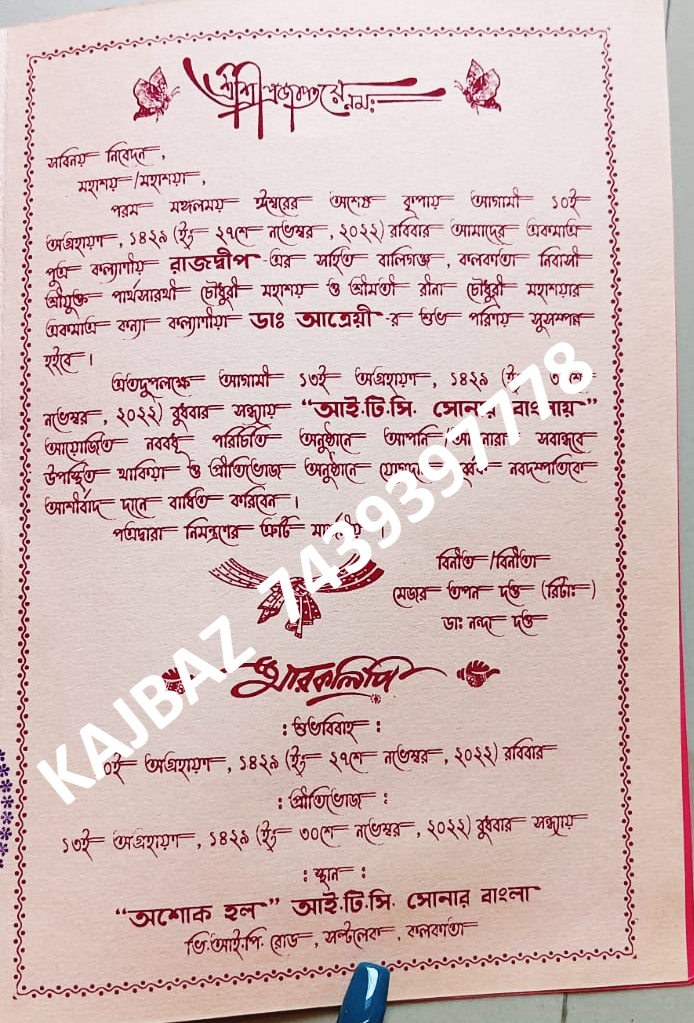 শ্রীশ্রী প্রজাপতয়ে নমঃ
সবিনয় নিবেদন,
মহাশয়/মহাশয়া,
পরম মঙ্গলময় ঈশ্বরের অশেষ কৃপায় আগামী ১০ই
অগ্রহায়ণ, ১৪২৯ (ইং ২৭শে নভেম্বর, ২০২২) রবিবার আমাদের একমাত্র
পুত্র কল্যাণীয় রাজদ্বীপ-এর সহিত বালিগঞ্জ, কলকাতা নিবাসী
শ্রীযুক্ত পার্থসারথী চৌধুরী মহাশয় ও শ্রীমতী রীনা চৌধুরী মহাশয়ার
একমাত্র কন্যা কল্যাণীয়া ডাঃ আত্রেয়ী-র শুভ পরিণয় সুসম্পন্ন
হইবে।
এতদুপলক্ষে আগামী ১৩ই অগ্রহায়ণ, ১৪২৯ (ইং ৩০শে
নভেম্বর, ২০২২) বুধবার সন্ধ্যায় “আই.টি.সি. সোনার বাংলায়”
আয়োজিত নববধূ পরিচিতি অনুষ্ঠানে আপনি/আপনারা সবান্ধবে
উপস্থিত থাকিয়া ও প্রীতিভোজ অনুষ্ঠানে নবদম্পতিকে
আশীর্বাদ দানে বাধিত করিবেন।
পত্রদ্বারা নিমন্ত্রণের ত্রুটি মার্জনীয়।
বিনীত/বিনীতা
মেজর তপন দত্ত (রিটাঃ)
ডাঃ নন্দা দত্ত
KAJBAZ 7439397778
স্মারকলিপি
: শুভবিবাহ :
১০ই অগ্রহায়ণ, ১৪২৯ (ইং ২৭শে নভেম্বর, ২০২২) রবিবার
: প্রীতিভোজ :
১৩ই অগ্রহায়ণ, ১৪২৯ (ইং ৩০শে নভেম্বর, ২০২২) বুধবার সন্ধ্যায়
: স্থান :
“অশোক হল” আই.টি.সি. সোনার বাংলা
ভি.আই.পি. রোড, সল্টলেক, কলকাতা